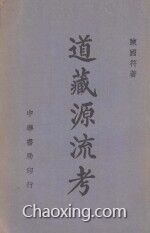 陳國符著
道藏源流考
中華書局印行
Chaoxing.com